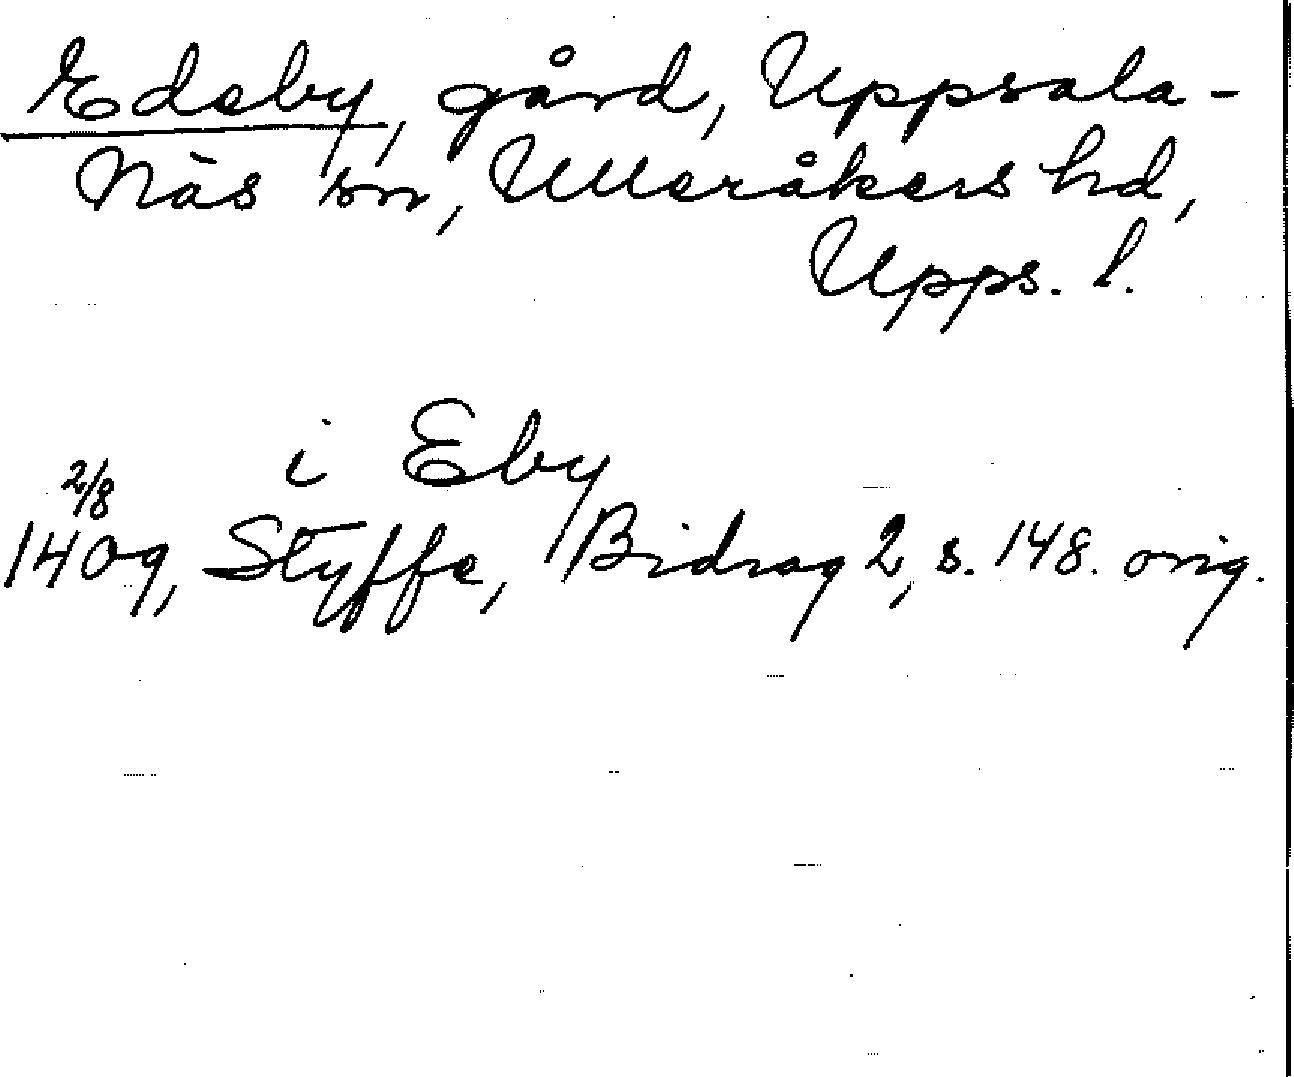 Edeby, gård, Uppsala-
Näs sn, Ulleråkers hd,
Upps. l.
i Eby
2/8
1409, Styffe, Bidrag 2, s. 148. orig.